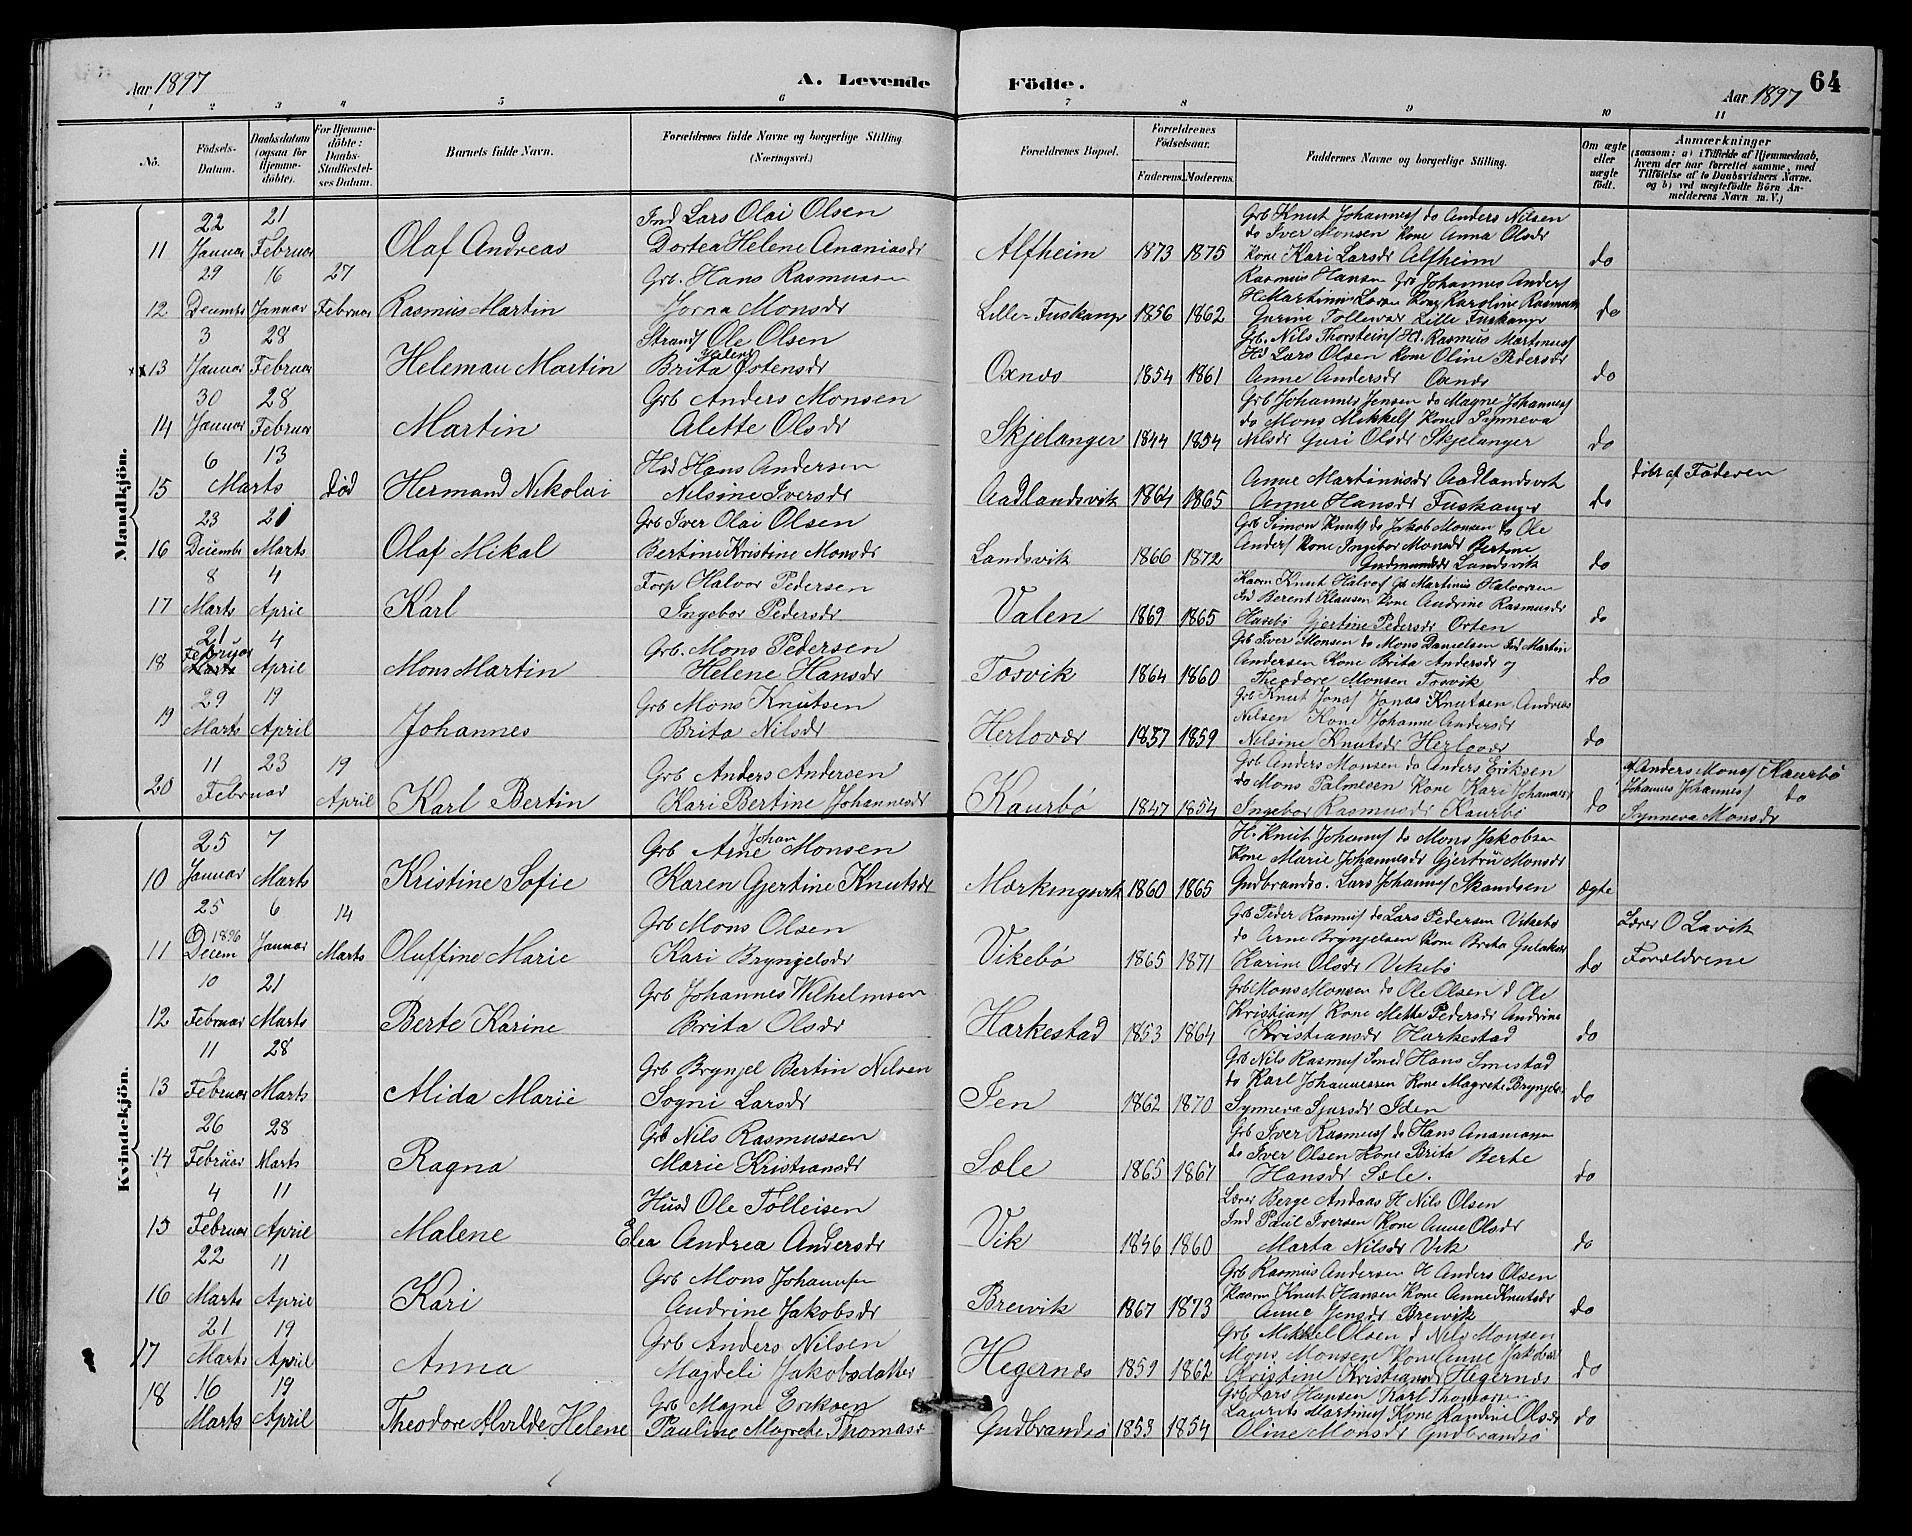 Aar 1897 A. Levende Födte. Aar 1897 64
1 2 3 4 5 6 7 8 9 10 11
No. Födsels-Datum. Daabsdatum (ogsaa for Hjemme-döbte). For Hjemme-döbte: Daabs-Stadfæstel-ses Datum. Barnets fulde Navn. Forældrenes fulde Navne og borgerlige Stilling (Næringsvei.) Forældrenes Bopæl. Forældrenes Födselsaar. Faderens. Moderens. Faddernes Navne og borgerlige Stilling. Om ægte eller uægte födt. Anmærkninger (saasom: a) i Tilfælde af Hjemmedaab, hvem der har forrettet samme, med Tilföielse af to Daabsvidners Navne. og b) ved uægtefödte Börn An-melderens Navn m. V.)
Mandkjön.
22 21 Ind Lars Olai Olsen Grb Knut Johannesf do Anders Nilsen
do Iver Monsen Kone Anna Olsdr
11 Januar Februar Olaf Andreas Dortea Helene Ananiasdr Alfheim 1873 1875 Kone Kari Larsdr Alfheim do
29 16 27 Grb. Hans Rasmussen Rasmus Hansen Grb Johannes Andersf
12 Decembr Januar Februar Rasmus Martin Jorna Monsdr Lille-Fuskanger 1856 1862 Lille Fuskanger do
3 28 Strandf Ole Olsen Grb. Nils Thorsteinsf Hd. Rasmus Martinusf
Malene Hd Lars Olsen Kone Oline Pedersdr
xx 13 Januar Februar Helemau Martin Brita Ostensdr Oxnes 1854 1861 Anne Andersdr Oxnes do
30 28 Grb Anders Monsen Grb Johannes Jensen do Magne Johannesf
do Mons Mikkelsf Kone Synneva
14 Januar Februar Martin Alette Olsdr Skjelanger 1844 1854 Nilsdr Guri Olsdr Skjelanger do
6 13 Hsd Hans Andersen Anne Martinusdr Aadlandsvik döbt af Faderen
15 Marts död Hermand Nikolai Nilsine Iversdr Aadlandsvik 1864 1865 Anne Hansdr Fuskanger do
23 21 Grb Iver Olai Olsen Grb Simon Knutsf do Jakob Monsen do Ole
Andersf Kone Ingebor Monsdr Bertine
16 Decembr Marts Olaf Mikal Bertine Kristine Monsdr Landsvik 1866 1872 Gudmundsdr Landsvik do
8 4 Forp Halvor Pedersen Knut Halvorsf Grb Martinus Halvorsen
Ind Berent Klausen Kone Andrine Rasmusdr
17 Marts April Karl Ingebor Pedersdr Valen 1869 1865 Husebö Gjertine Pedersdr Orten do
21 4 Grb. Mons Pedersen Grb Iver Monsen do Mons Danielsen Ind Martin
Februar Andersen Kone Brita Andersdr og
18 Marts April Mons Martin Helene Hansdr Tosvik 1864 1860 Theodore Monsen Tosvik do
29 19 Grb Mons Knutsen Grb Knut Jonasf Jonas Knutsen Andreas
Nilsen Kone Johanne Andersdr
19 Marts April Johannes Brita Nilsdr Herlover 1857 1859 Nilsine Knutsdr Herlover do
11 23 19 Grb Anders Andersen Grb Anders Monsen do Anders Eriksen af Anders Monsf Kaurbö
do Mons Palmesen Kone Kari Johannesdr Johannes Johannesf do
20 Februar April Karl Bertin Kari Bertine Johannesdr Kaurbö 1847 1854 Ingebor Rasmusdr Kaurbö do Synneva Monsdr
Kvindekjön.
25 7 Johan H. Knut Johannesf do Mons Jakobsen
Grb Arne Monsen Kone Marie Johannesdr Gjertru Monsdr
10 Januar Marts Kristine Sofie Karen Gjertine Knutsdr Mærkingsvik 1860 1865 Gudbrandsö. Lars Johannesf Skandsen ægte
25 6 14 Grb Mons Olsen Grb Peder Rasmusf do Lars Pedersen Vikebö Lærer O Lavik
1896 do Arne Brynjelsen Kone Brita
11 Decem Januar Marts Oluffine Marie Kari Brynjelsdr Vikebö 1865 1871 Karine Olsdr Vikebö do Forældrene
10 21 Grb Johannes Wilhelmsen Grb Mons Monsen do Ole Olsen d Ole
Kristiansf Kone Mette Pedersdr Andrine
12 Februar Marts Berte Karine Brita Olsdr Harkestad 1853 1864 Kristiansdr Harkestad do
11 28 Grb Brynjel Bertin Nilsen Grb Nils Rasmusf Smed Hans Smestad
do Karl Johannessen Kone Magrete Brynjelsdr
13 Februar Marts Alida Marie Sogni Larsdr Ien 1862 1870 Synneva Sjursdr Iden do
26 28 Grb Nils Rasmussen Grb Iver Rasmusf do Hans Ananiasen
do Iver Olsen Kone Brita Berte
14 Februar Marts Ragna Marie Kristiansdr Sæle 1865 1867 Hansdr Sæle. do
4 11 Husd Ole Tolleisen Lærer Berge Andaas H Nils Olsen
Ind Paul Iversen Kone Anne Olsdr
15 Februar April Malene Elen Andrea Andersdr Vik 1846 1860 Marta Nilsdr Vik do
22 11 Grb Mons Johannesen Grb Rasmus Andersen H Anders Olsen
Knut Hansen Kone Anne Knutsdr
16 Marts April Kari Andrine Jakobsdr Breivik 1867 1873 Anne Jensdr Breivik do
21 19 Grb Anders Nilsen Grb Mikkel Olsen d Nils Monsen
17 Marts April Anna Majdeli Jakobsdatter Hegernes 1859 1862 Mons Monsen Kone Anne Jakobsdr do
Kristine Kristiansdr Hegernes
18 16 19 Grb Majne Eriksen Grb Lars Hansen Karl Thomasen
Laurits Martinusf Kone Randine Olsdr
Marts April Theodore Alvilde Helene Pauline Magrete Thomasdr Gudbrandsö 1853 1854 Oline Monsdr Gudbrandsö do